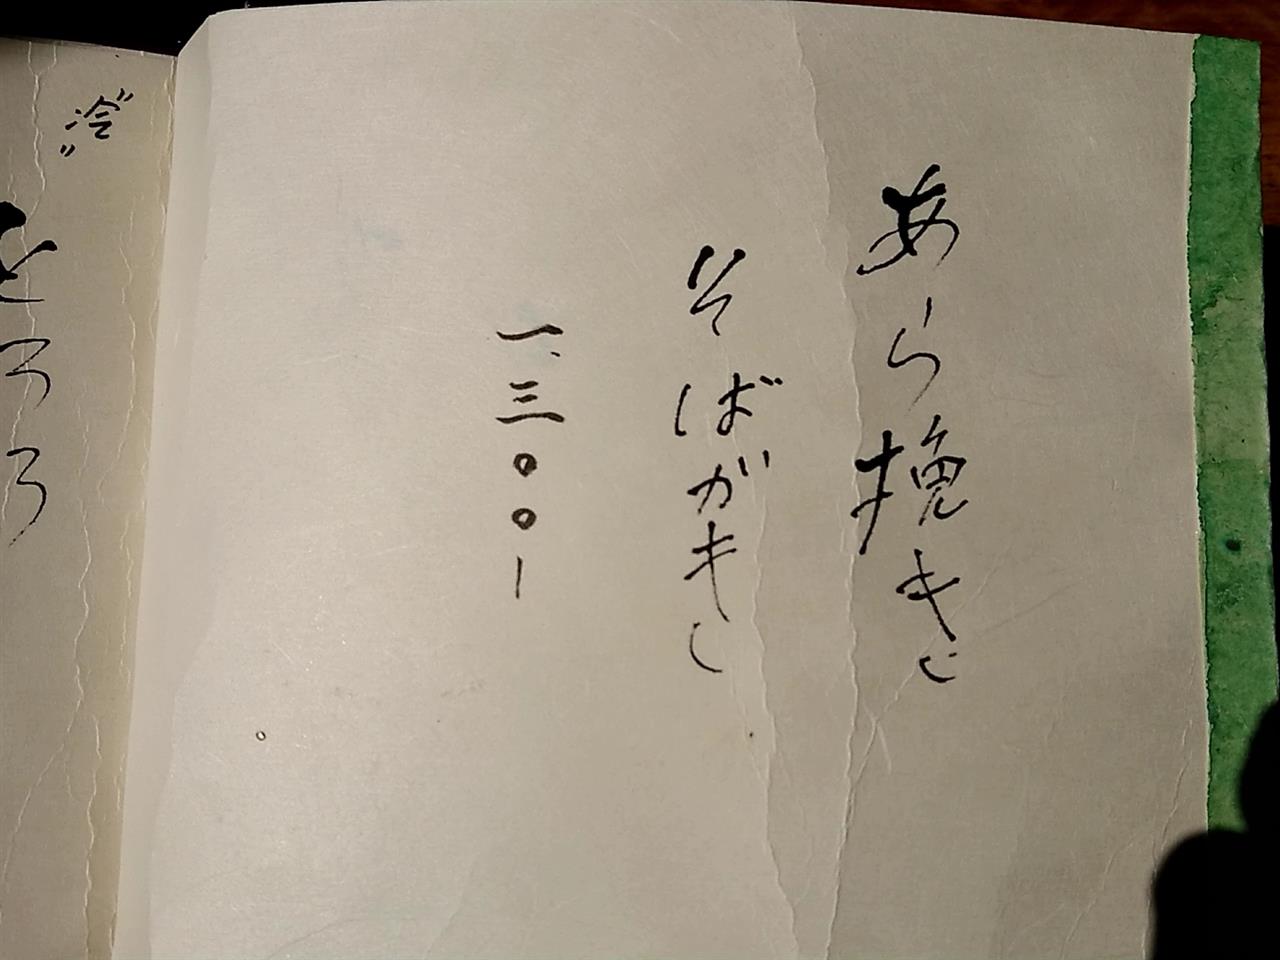 あら挽き
そばがき
一、三〇〇ー
"冷"
とろろ